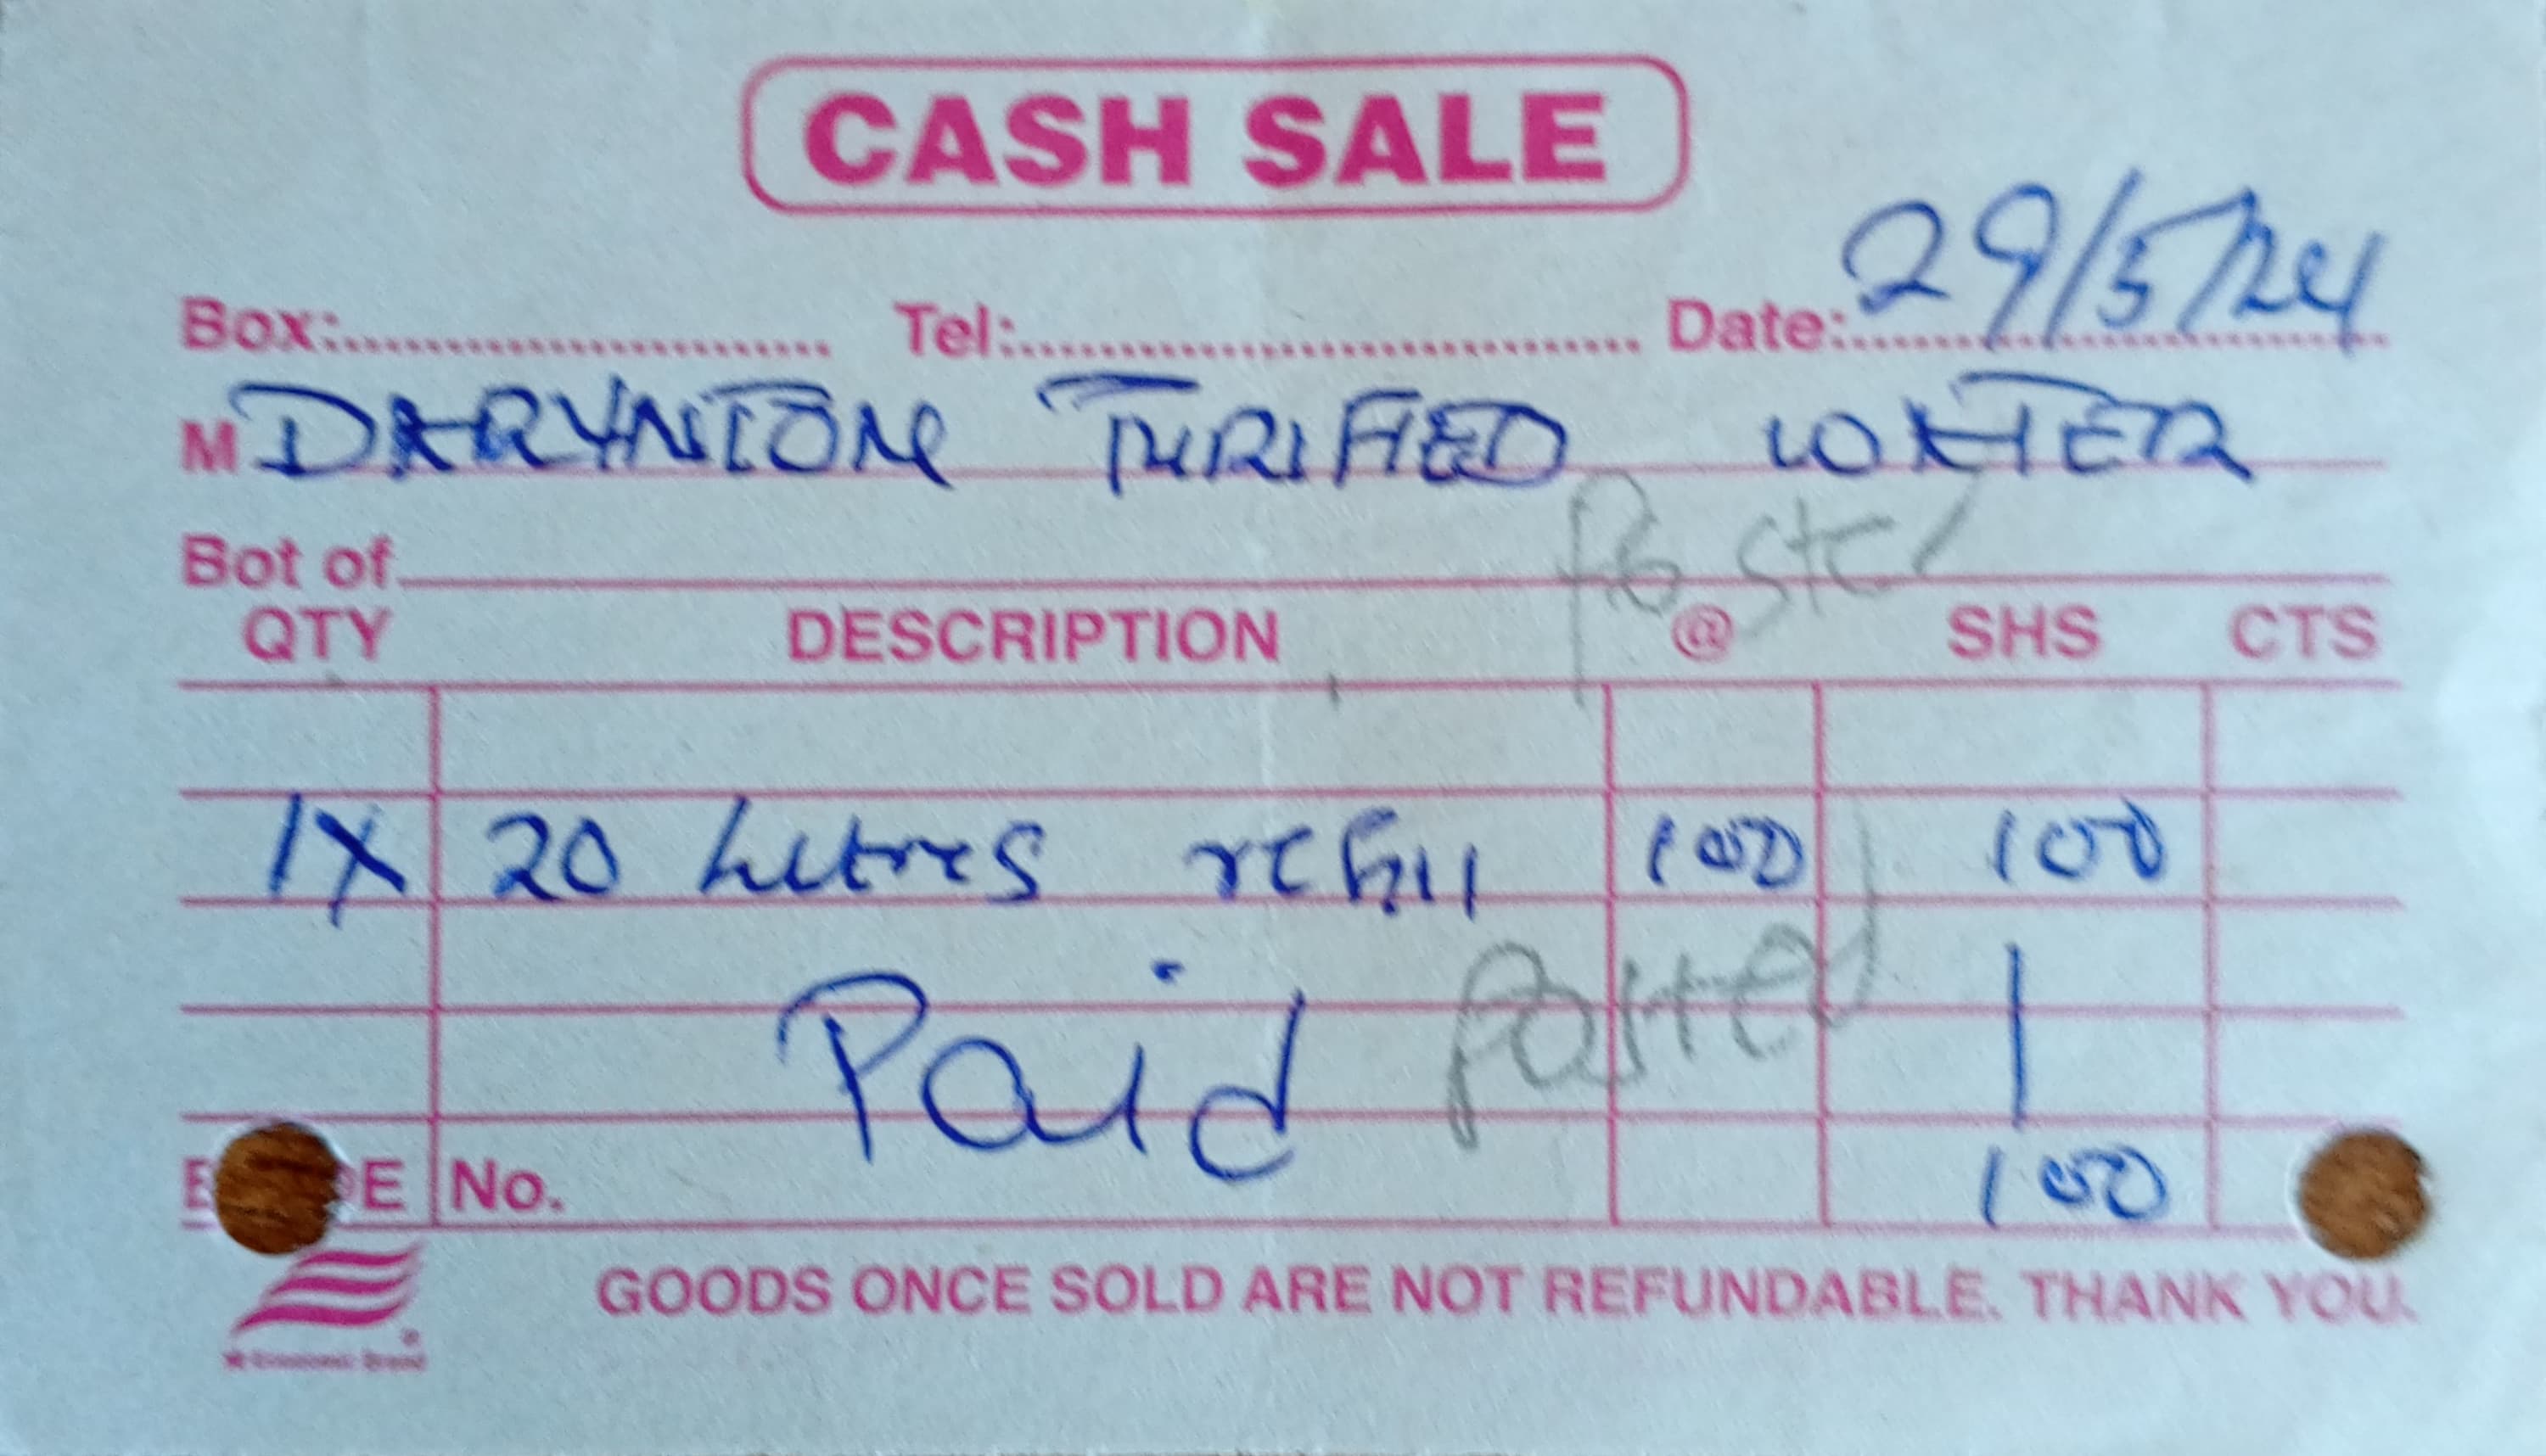 CASH SALE
Box: Tel: Date: 29/5/24
M DARYNTON PURIFIED WATER
Posted
Bot of
QTY DESCRIPTION @ SHS CTS
1X 20 Litres refill 100 100
Paid Posted
E&OE No. 100
GOODS ONCE SOLD ARE NOT REFUNDABLE. THANK YOU.